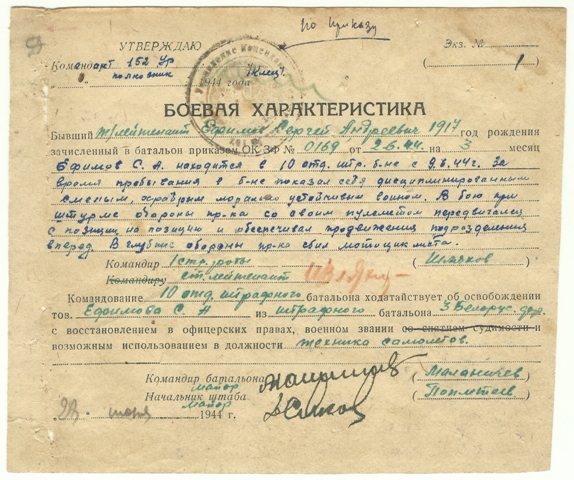 По приказу
УТВЕРЖДАЮ Экз. № 1
Комендант 152 Ур
полковник
" " 1944 года
БОЕВАЯ ХАРАКТЕРИСТИКА
Бывший мл/лейтенант Ефимов Сергей Андреевич 1917 год рождения
зачисленный в батальон приказом ОК ЗФ № 0169 от 2.6.44. на 3 месяц
Ефимов С. А. находится в 10 отд. штр. б-не с 9.6.44г. За
время пребывания в б-не показал себя дисциплинированным
смелым, храбрым морально устойчивым воином. В бою при
штурме обороны пр-ка со своим пулеметом передвигался
с позиции на позицию и обеспечивал продвижение подразделения
вперед. В глубине обороны пр-ка сбил мотоциклиста.
Командир 1 стр. роты
Командиру ст. лейтенант ( Шлячков )
Командование 10 отд. штрафного батальона ходатайствует об освобождении
тов. Ефимова С. А из штрафного батальона 3 Белорус. фр.
с восстановлением в офицерских правах, военном звании со снятием судимости и
возможным использованием в должности техника самолетов.
Командир батальона
майор ( Маланичев )
Начальник штаба
майор
28 июня 1944 г.